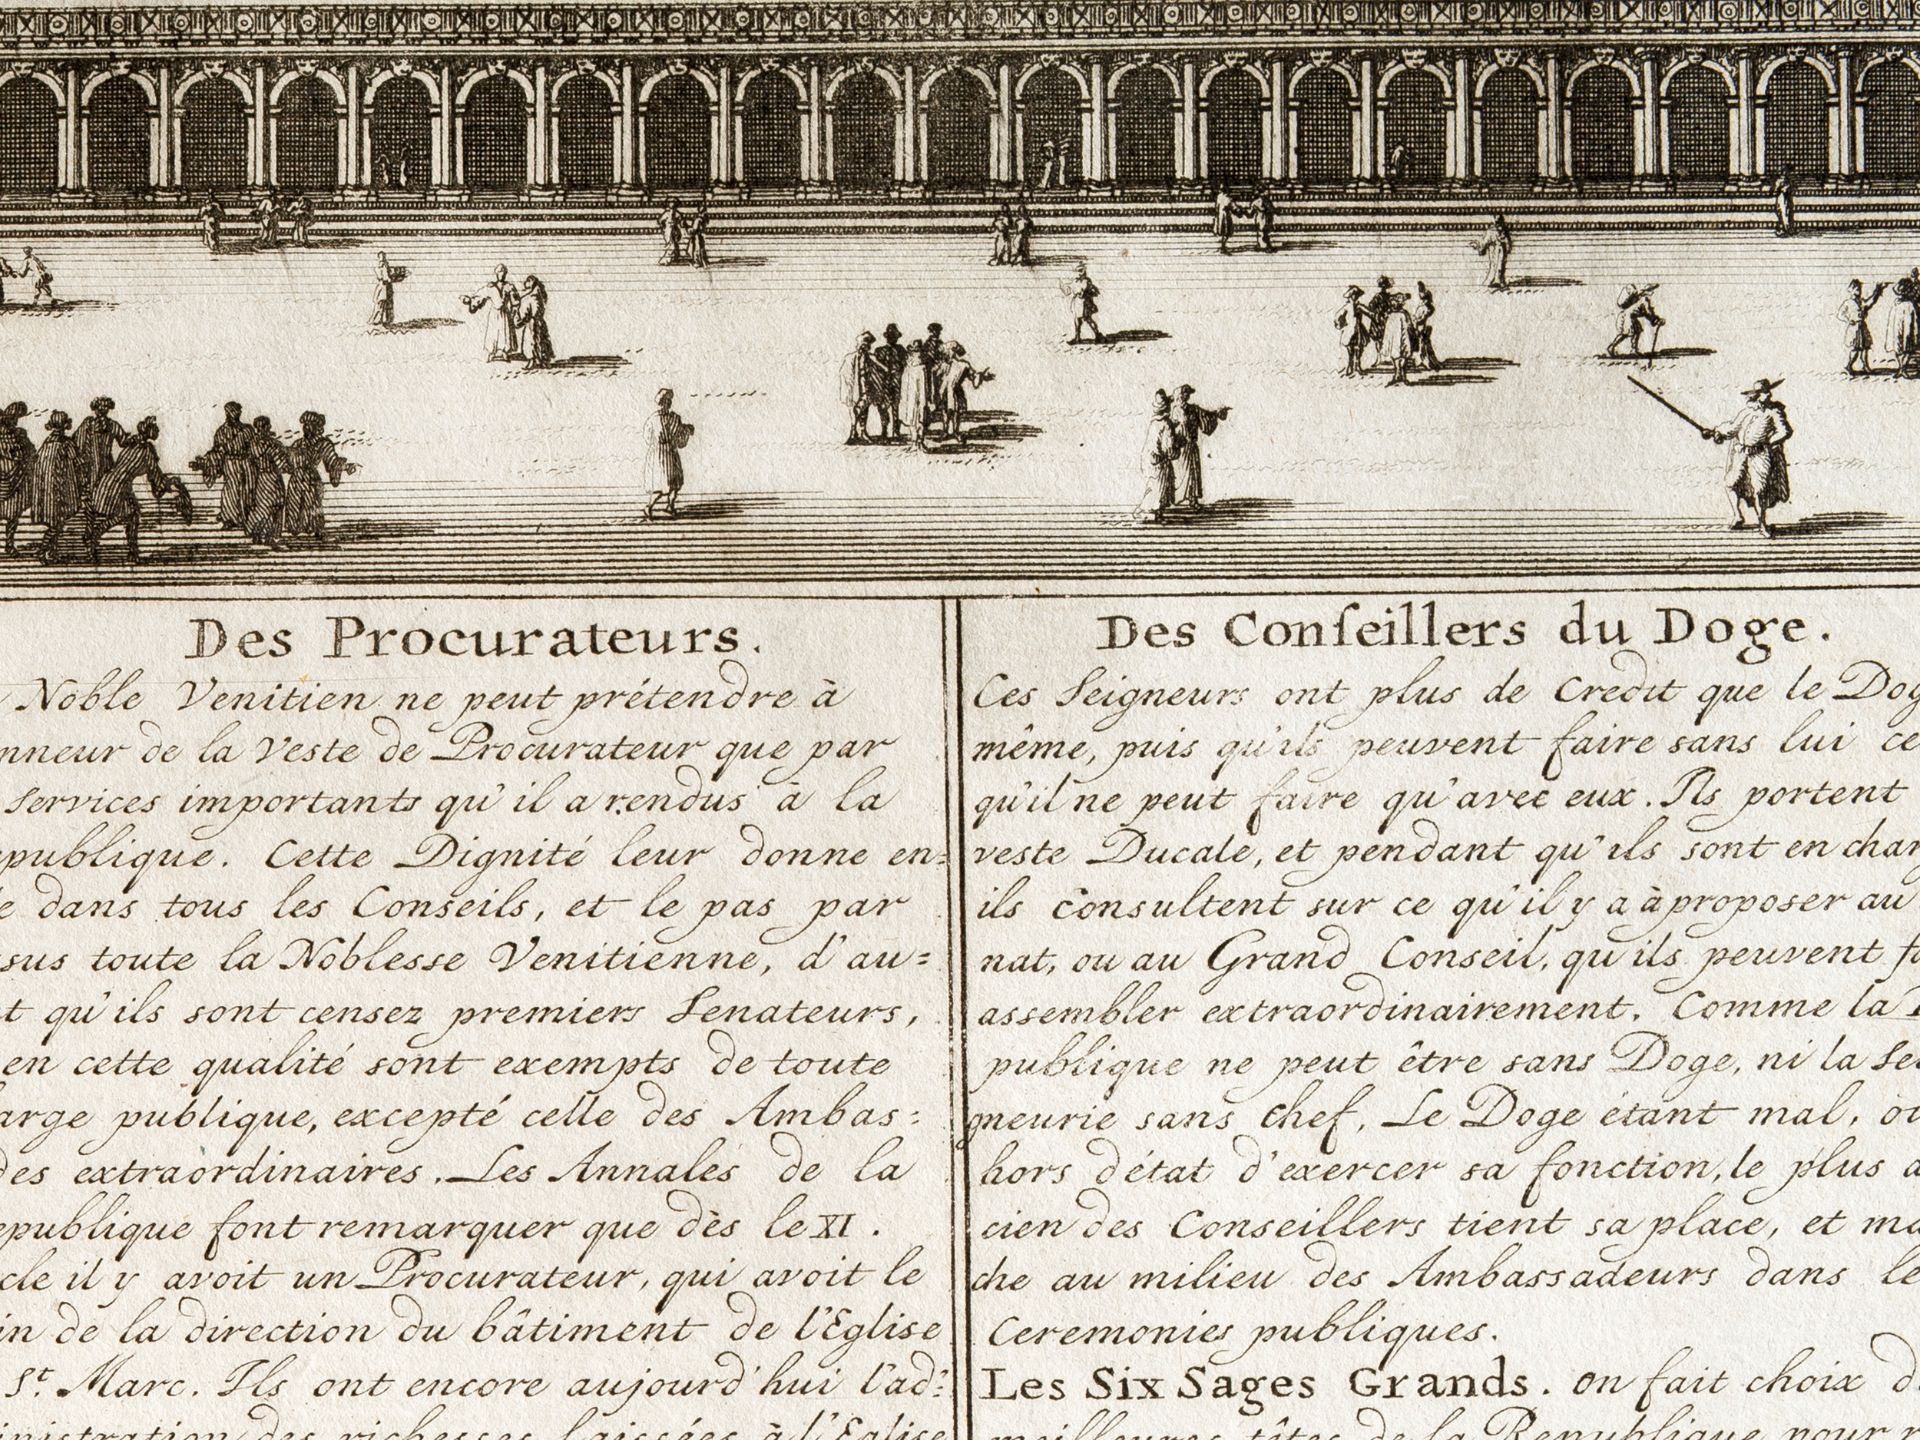 Des Procurateurs.
Noble Venitien ne peut prétendre à
nneur de la Veste de Procurateur que par
services importants qu'il a rendus à la
epublique. Cette Dignité leur donne en=
e dans tous les Conseils, et le pas par
sus toute la Noblesse Venitienne, d'au=
t qu'ils sont censez premiers Senateurs,
en cette qualité sont exempts de toute
arge publique, excepté celle des Ambas=
des extraordinaires. Les Annales de la
epublique font remarquer que dès le XI.
cle il y avoit un Procurateur, qui avoit le
in de la direction du bâtiment de l'Eglise
St. Marc. Ils ont encore aujourd'hui l'ad=
inistration des richesses laissées à l'Eglise
Des Conſeillers du Doge.
Ces Seigneurs ont plus de Credit que le Dog
même, puis qu'ils peuvent faire sans lui ce
qu'il ne peut faire qu'avec eux. Ils portent
veste Ducale, et pendant qu'ils sont en char
ils consultent sur ce qu'il y a à proposer au
nat, ou au Grand Conseil, qu'ils peuvent f
assembler extraordinairement. Comme la
publique ne peut être sans Doge, ni la Sei
gneurie sans chef, Le Doge étant mal, ou
hors d'état d'exercer sa fonction, le plus a
cien des Conseillers tient sa place, et ma
che au milieu des Ambassadeurs dans le
Ceremonies publiques.
Les Six Sages Grands. on fait choix d
meilleures têtes de la Republique pour